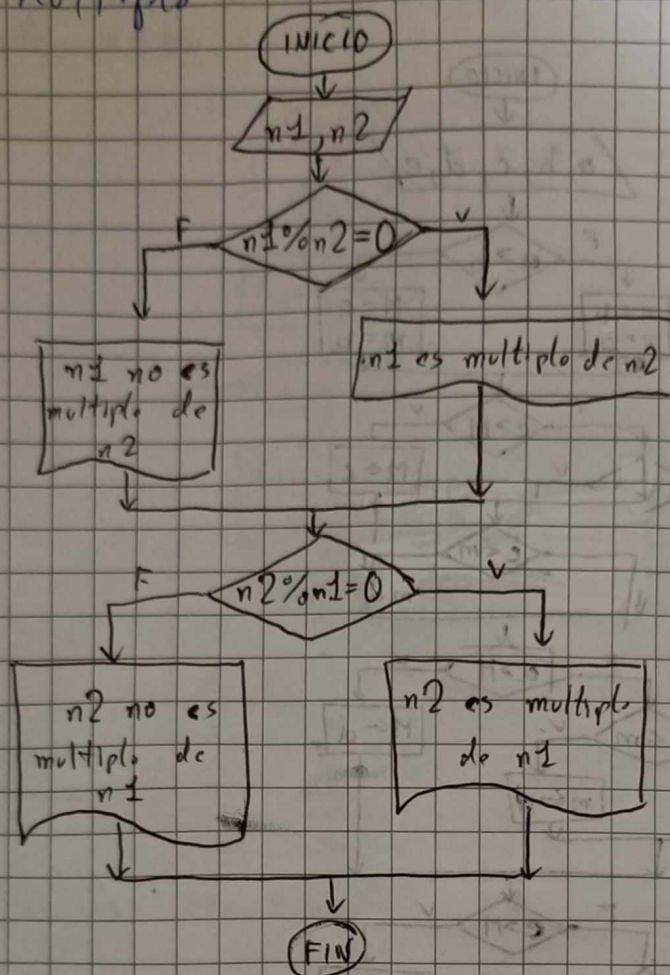 INICIO
n1, n2
n1%n2=0
F
V
n1 no es
multiplo de
n2
n1 es multiplo de n2
n2%n1=0
F
V
n2 no es
multiplo de
n1
n2 es multiplo
de n1
FIN